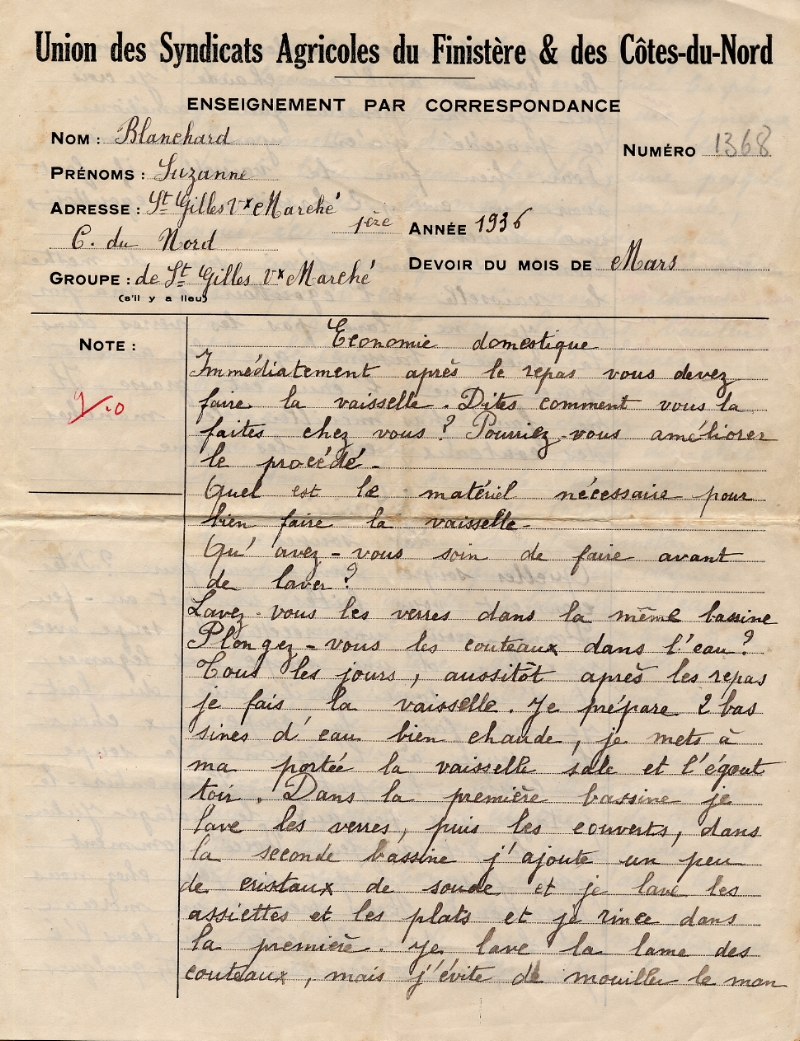 Union des Syndicats Agricoles du Finistère & des Côtes-du-Nord
ENSEIGNEMENT PAR CORRESPONDANCE
NOM : Blanchard
NUMÉRO 1368
PRÉNOMS : Suzanne
ADRESSE : St Gilles Vx Marché
1ère ANNÉE 1936
C. du Nord
DEVOIR DU MOIS DE Mars
GROUPE : de St Gilles Vx Marché
(s'il y a lieu)
NOTE :
9/10
Economie domestique
Immédiatement après le repas vous devez
faire la vaisselle. Dites comment vous la
faites chez vous ? Pourriez-vous améliorer
le procédé -
Quel est le matériel nécessaire pour
bien faire la vaisselle -
Qu'avez-vous soin de faire avant
de laver ?
Lavez-vous les verres dans la même bassine
Plongez-vous les couteaux dans l'eau ?
Tous les jours, aussitôt après les repas
je fais la vaisselle. Je prépare 2 bas
sines d'eau bien chaude, je mets à
ma portée la vaisselle sale et l'égout
toir. Dans la première bassine je
lave les verres, puis les couverts, dans
la seconde bassine j'ajoute un peu
de cristaux de soude et je lave les
assiettes et les plats et je rince dans
la première. Je lave la lame des
couteaux, mais j'évite de mouiller le man